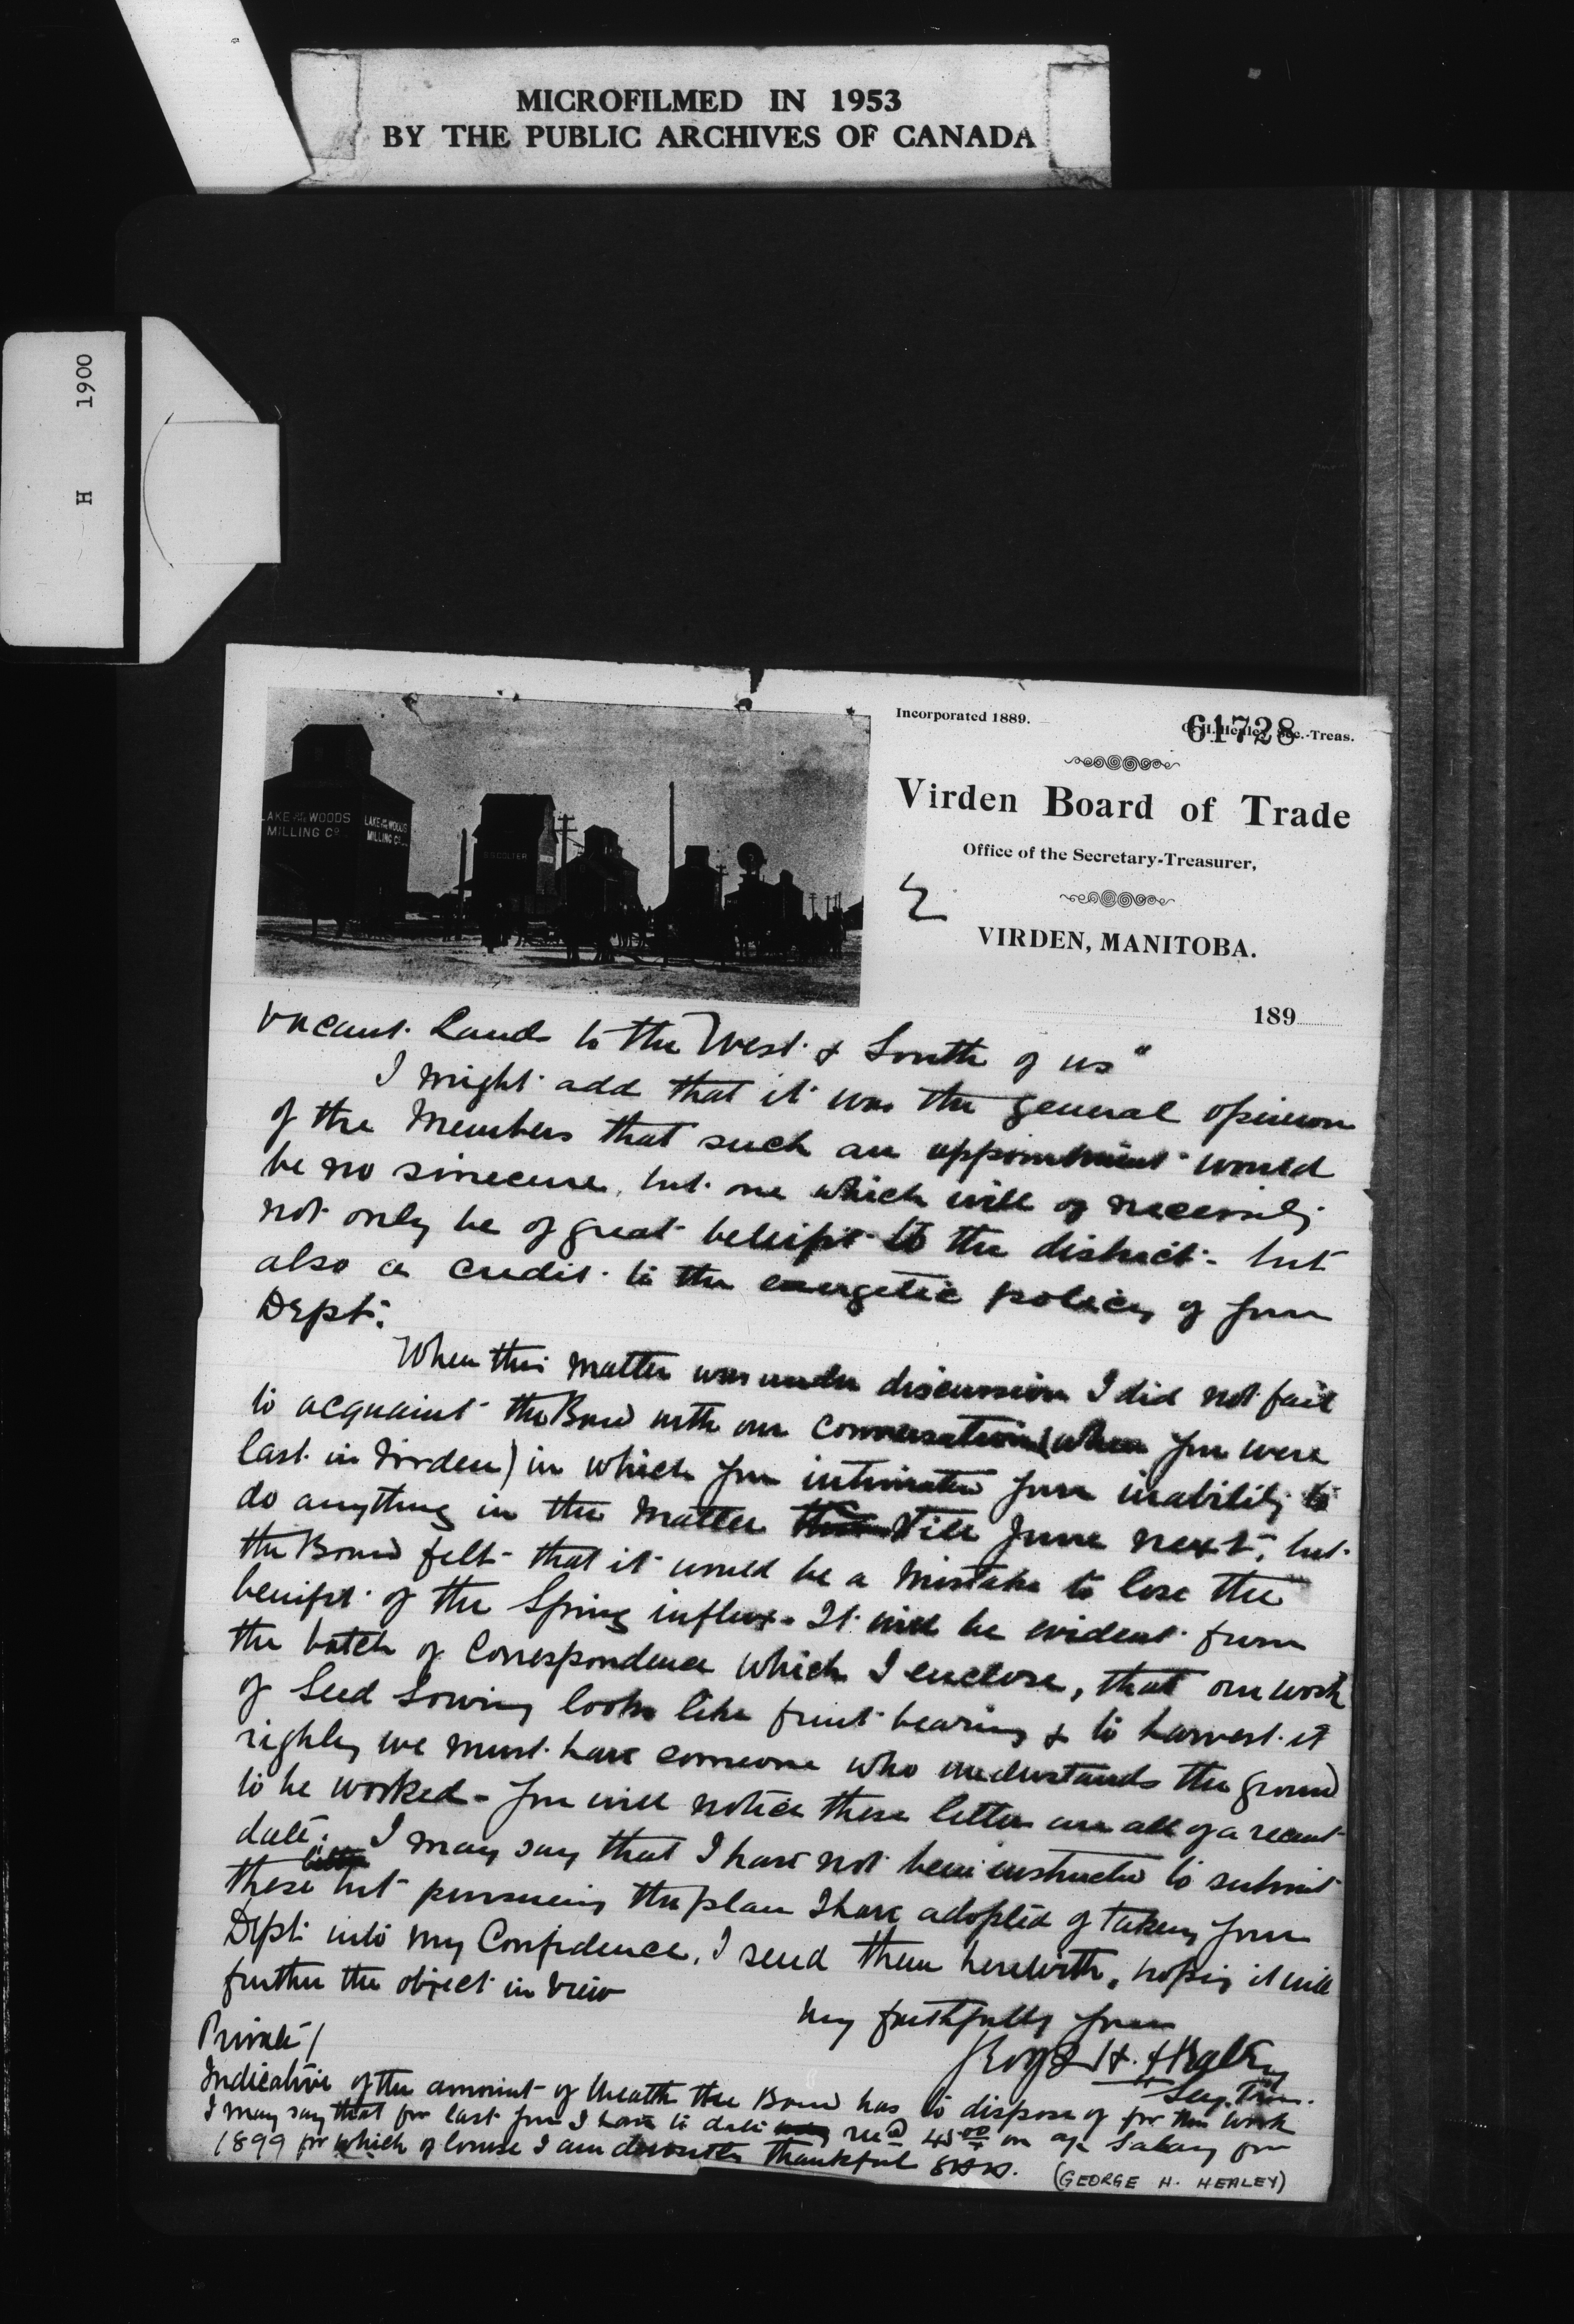 MICROFILMED IN 1953
BY THE PUBLIC ARCHIVES OF CANADA
H 1900
LAKE OF THE WOODS
MILLING CO
LAKE OF THE WOODS
MILLING CO
Incorporated 1889.
61728
G. H. Healey, Sec.-Treas.
Virden Board of Trade
Office of the Secretary-Treasurer,
2
VIRDEN, MANITOBA.
189
vacant Lands to the West & South of us"
I might add that it was the general opinion
of the Members that such an appointment would
be no sinecure, but one which will of necessity
not only be of great benifit to the district - but
also a credit to the energetic policy of your
Dept.
When this matter was under discussion I did not fail
to acquaint the Board with our conversation (when you were
last in Virden) in which you intimated your inability to
do anything in the matter till June next, but
the Board felt that it would be a mistake to lose the
benifit of the Spring influx - It will be evident from
the batch of Correspondence which I enclose, that our work
of Seed Sowing looks like fruit bearing & to harvest it
rightly we must have someone who understands the ground
to be worked - You will notice these letters are all of a recent
date. I may say that I have not been instructed to submit
these letters but pursueing the plan I have adopted of taking your
Dept into my Confidence, I send them herewith, hoping it will
further the object in view
Very faithfully yours
George H. Healey
Secy. Treas.
Private/
Indicative of the amount of Wealth the Board has to dispose of for this work
I may say that for last year I have to date recd 45.00 on a/c Salary for
1899 for which of course I am devoutly thankful
(GEORGE H. HEALEY)